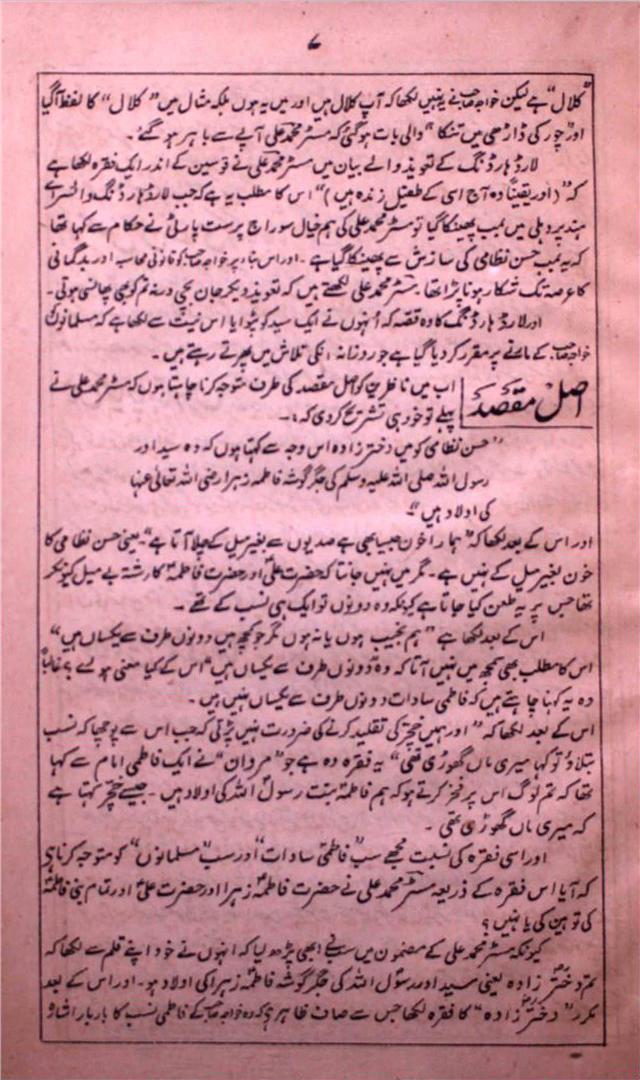 ۷
"کلال" ہے لیکن خواجہ صاحب نے یہ نہیں لکھا کہ آپ کلال ہیں اور میں یہ ہوں بلکہ مثال میں "کلال" کا لفظ آگیا
اور "چور کی ڈاڑھی میں تنکا" والی بات ہوگئی کہ مسٹر محمد علی آپے سے باہر ہو گئے۔
لارڈ ہارڈنگ کے تعویذ والے بیان میں مسٹر محمد علی نے قوسین کے اندر ایک فقرہ لکھا ہے
کہ "(اور یقیناً وہ آج اسی کے طفیل زندہ ہیں)" اس کا مطلب یہ ہے کہ جب لارڈ ہارڈنگ وائسرائے
ہند پر دہلی میں بمب پھینکا گیا تو مسٹر محمد علی کی ہم خیال سوراج پرست پارٹی نے حکام سے کہا تھا
کہ یہ بمب حسن نظامی کی سازش سے پھینکا گیا ہے۔ اور اس بناء پر خواجہ صاحب کو قانونی محاسبہ اور بدگمانی
کا عرصہ تک شکار ہونا پڑا تھا۔ مسٹر محمد علی لکھتے ہیں کہ تعویذ دیکر جان بچی ورنہ تم کو بھی پھانسی ہوتی۔
اور لارڈ ہارڈنگ کا وہ قصہ کہ اُنہوں نے ایک سید کو پٹوایا اس نیت سے لکھا ہے کہ مسلمانوں کو
خواجہ صاحب کے مارنے پر مقرر کر دیا گیا ہے جو روزانہ انکی تلاش میں پھرتے رہتے ہیں۔
اصل مقصد
اب میں ناظرین کو اصل مقصد کی طرف متوجہ کرنا چاہتا ہوں کہ مسٹر محمد علی نے
پہلے تو خود ہی تشریح کر دی کہ:۔
"حسن نظامی کو میں دختر زادہ اس وجہ سے کہتا ہوں کہ وہ سید اور
رسول اللہ صلی اللہ علیہ وسلم کی جگر گوشہ فاطمہ زہرا رضی اللہ تعالیٰ عنہا
کی اولاد ہیں"۔
اور اس کے بعد لکھا کہ "ہمارا خون جیسا بھی ہے صدیوں سے بغیر میل کے چلا آتا ہے"۔ یعنی حسن نظامی کا
خون بغیر میل کے نہیں ہے۔ مگر میں نہیں جانتا کہ حضرت علیؓ اور حضرت فاطمہؓ کا رشتہ بے میل کیونکر
تھا جس پر یہ طعن کیا جاتا ہے کیونکہ وہ دونوں تو ایک ہی نسب کے تھے۔
اس کے بعد لکھا ہے "ہم نجیب ہوں یا نہ ہوں مگر جو کچھ ہیں دونوں طرف سے یکساں ہیں"
اس کا مطلب بھی سمجھ میں نہیں آتا کہ وہ "دونوں طرف سے یکساں ہیں" اس کے کیا معنی ہوئے؟ غالباً
وہ یہ کہنا چاہتے ہیں کہ فاطمی سادات دونوں طرف سے یکساں نہیں ہیں۔
اس کے بعد لکھا کہ "اور ہمیں خچر کی تقلید کرنے کی ضرورت نہیں پڑتی کہ جب اس سے پوچھا کہ نسب
بتلاؤ تو کہا میری ماں گھوڑی تھی" یہ فقرہ وہ ہے جو "مروان" نے ایک فاطمی امام سے کہا
تھا کہ تم لوگ اس پر فخر کرتے ہو کہ ہم فاطمہؓ بنت رسولؐ اللہ کی اولاد ہیں۔ جیسے خچر کہتا ہے
کہ میری ماں گھوڑی تھی۔
اور اسی فقرہ کی نسبت مجھے سب "فاطمی سادات" اور سب "مسلمانوں" کو متوجہ کرنا ہی
کہ آیا اس فقرہ کے ذریعہ مسٹر محمد علی نے حضرت فاطمہؓ زہرا اور حضرت علیؓ اور تمام بنی فاطمہؓ
کی توہین کی یا نہیں؟
کیونکہ مسٹر محمد علی کے مضمون میں سب نے ابھی پڑھ لیا کہ انہوں نے خود اپنے قلم سے لکھا کہ
تم دختر زادہ یعنی سید اور رسولؐ اللہ کی جگر گوشہ فاطمہؓ زہرا کی اولاد ہو۔ اور اس کے بعد
مکرر "دختر زادہ" کا فقرہ لکھا جس سے صاف ظاہر ہے کہ وہ خواجہ صاحب کے فاطمی نسب کا بار بار اشارہ